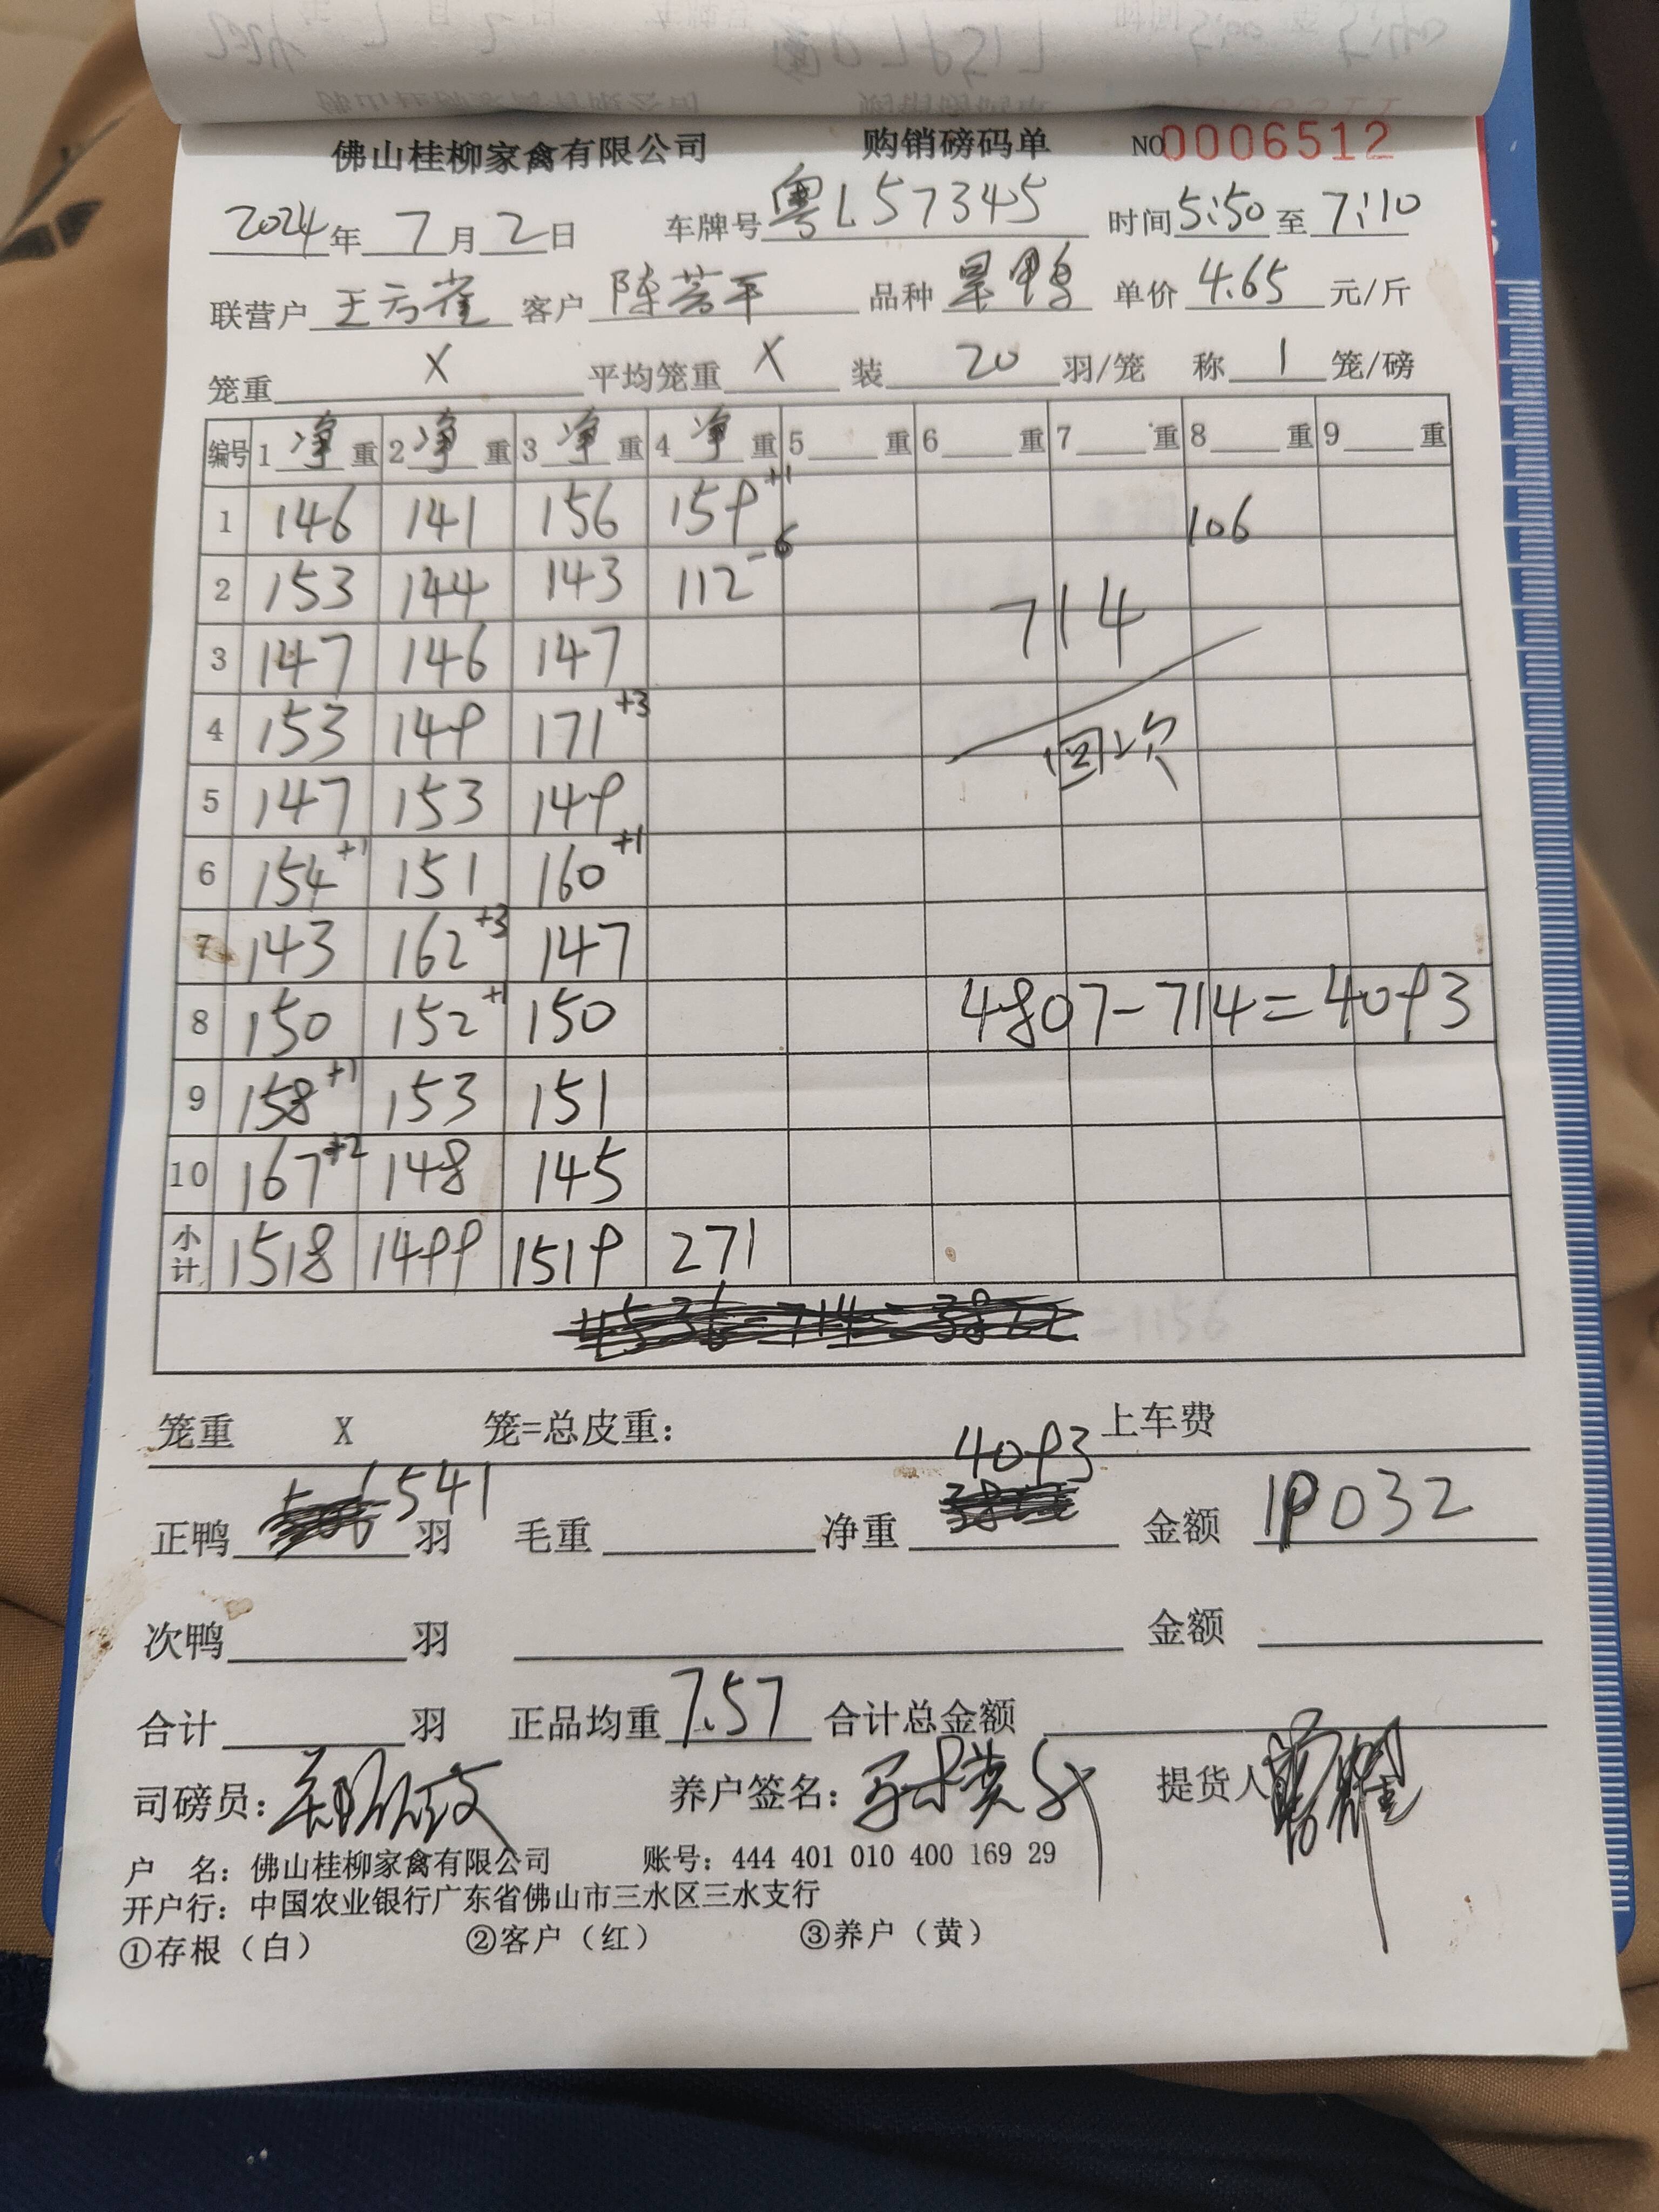 佛山桂柳家禽有限公司 购销磅码单 NO0006512
2024年 7月2日 车牌号粤L57345 时间5:50至7:10
联营户 王云雀 客户 陈芸平 品种 鸭 单价 4.65 元/斤
笼重 X 平均笼重 X 装 20 羽/笼 称 1 笼/磅
编号 1 净 重 2 净 重 3 净 重 4 净 重 5 重 6 重 7 重 8 重 9 重
1 146 141 156 159+1 106
2 153 144 143 112-6
3 147 146 147 714
4 153 149 171+3 回次
5 147 153 149
6 154+1 151 160+1
7 143 162+3 147
8 150 152+1 150 4807-714=4093
9 158+1 153 151
10 167+2 148 145
小计 1518 1499 1519 271
4536-714=3822
笼重 X 笼=总皮重: 上车费
正鸭 541 羽 毛重 净重 4093 金额 19032
次鸭 羽 金额
合计 羽 正品均重 7.57 合计总金额
司磅员: 养户签名: 提货人
户 名: 佛山桂柳家禽有限公司 账号: 444 401 010 400 169 29
开户行: 中国农业银行广东省佛山市三水区三水支行
①存根（白） ②客户（红） ③养户（黄）